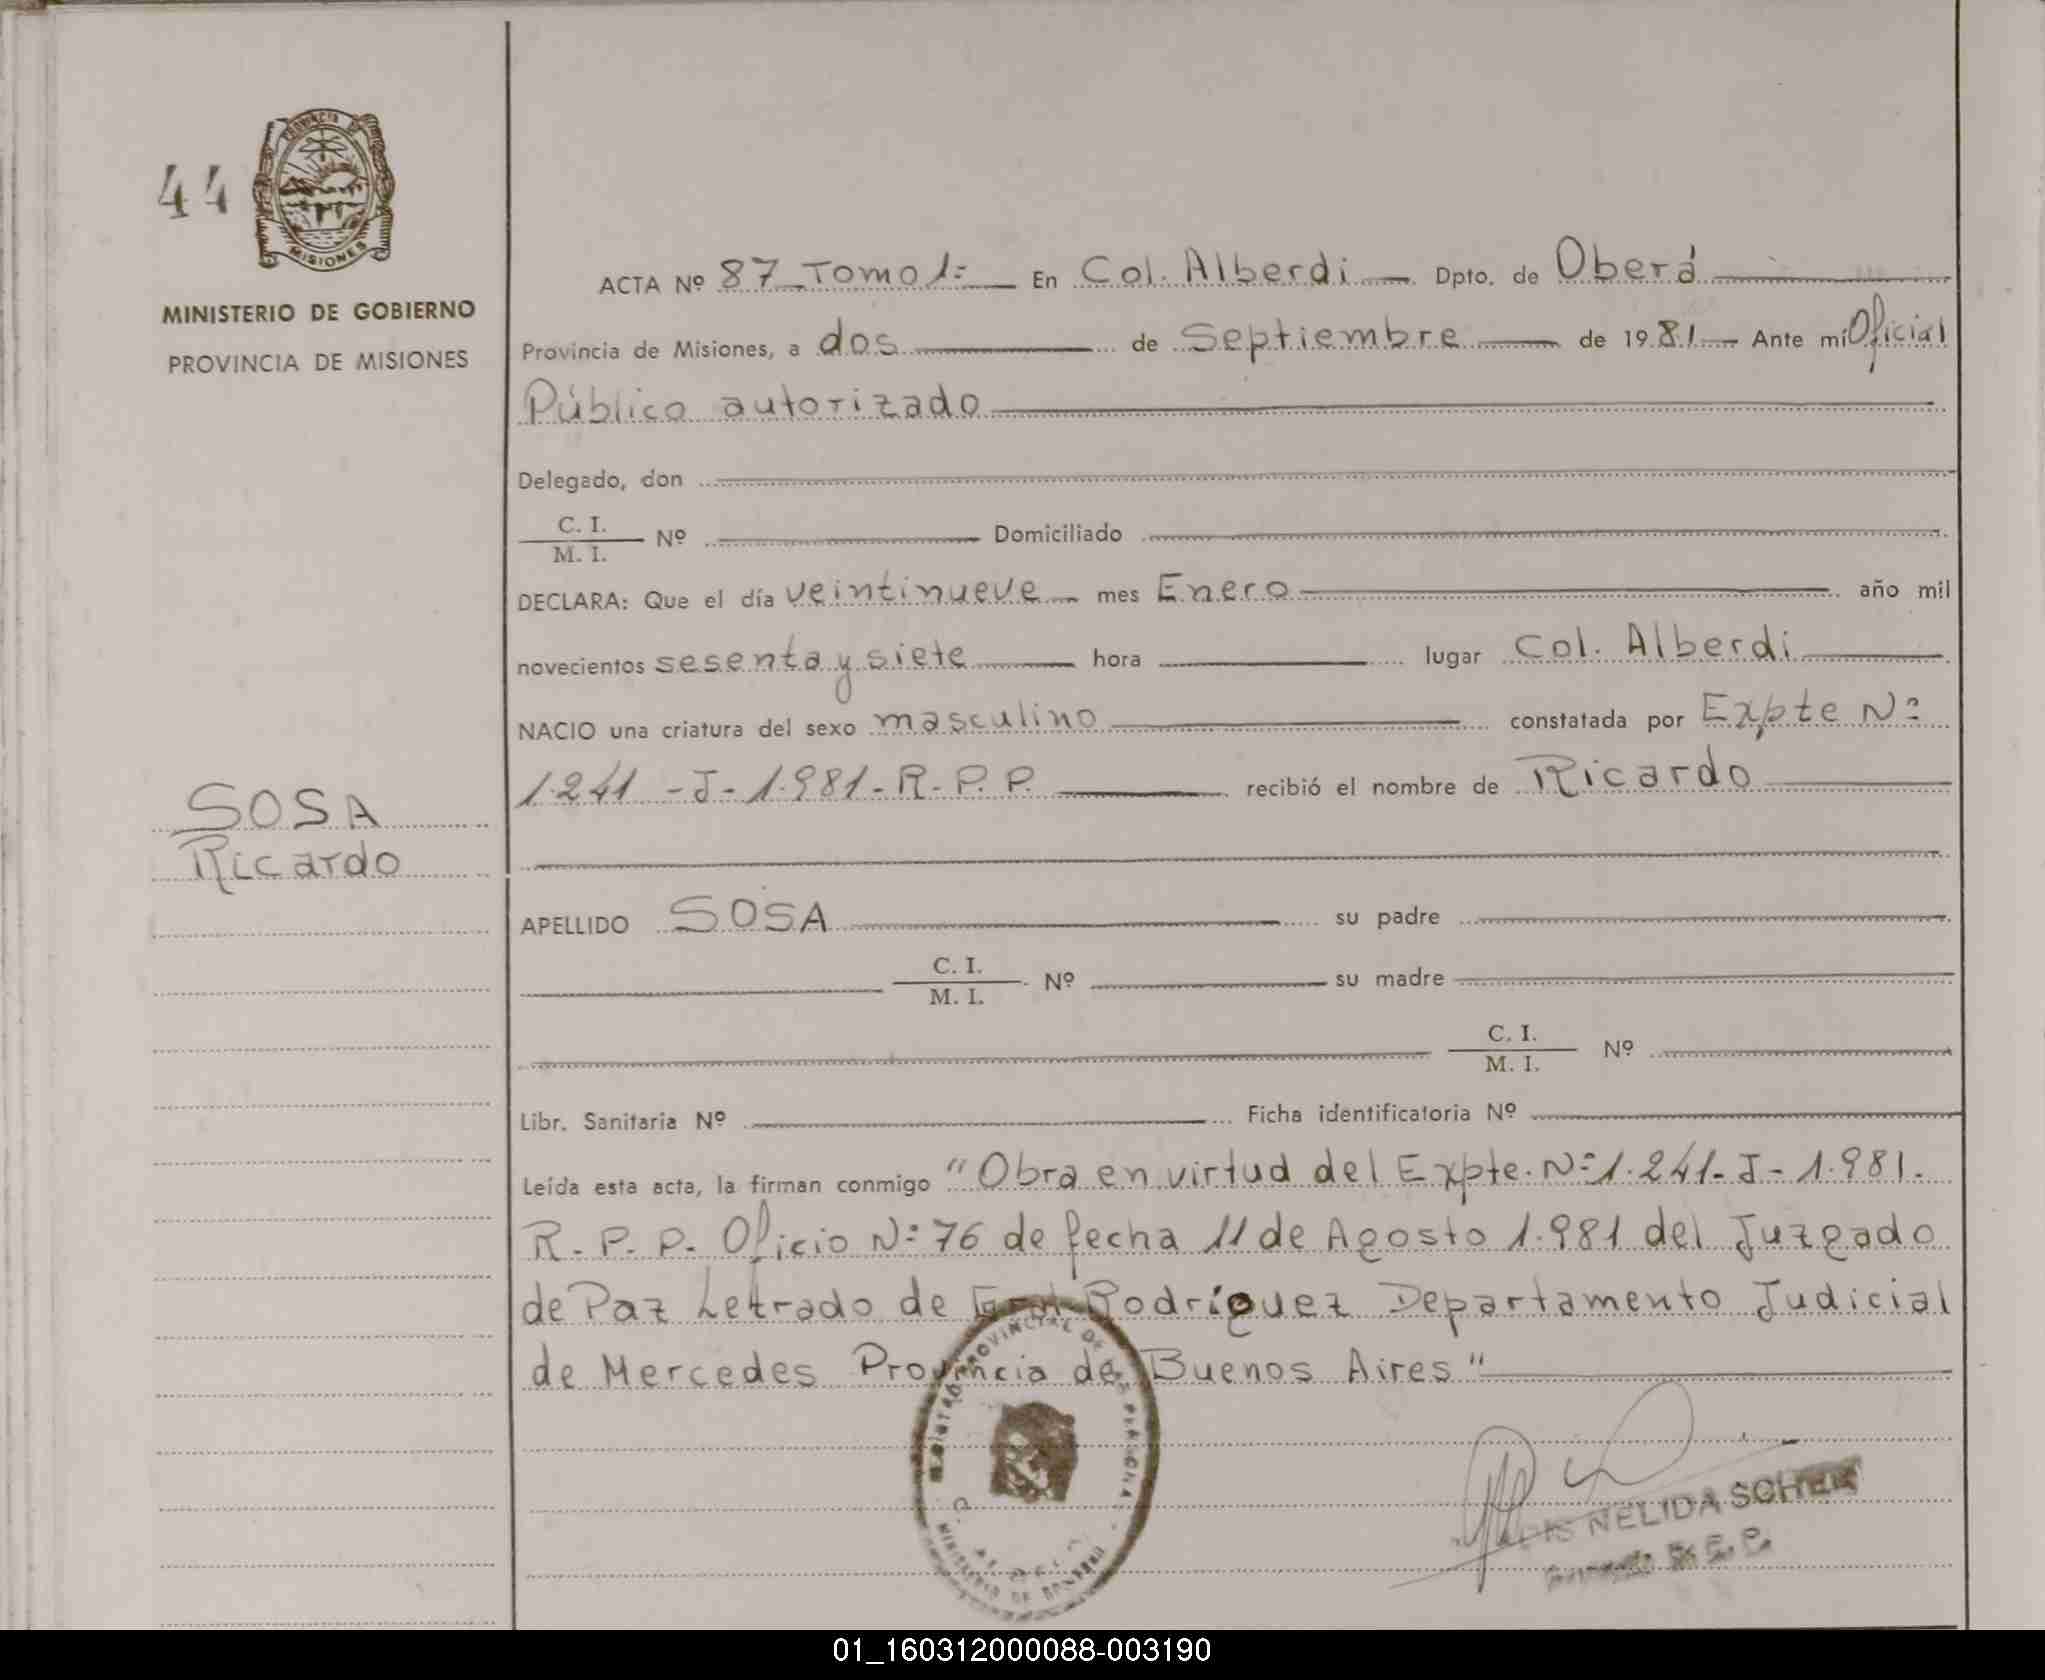 44
PROVINCIA DE
MISIONES
MINISTERIO DE GOBIERNO
PROVINCIA DE MISIONES
SOSA
Ricardo
ACTA Nº 87 Tomo 1º En Col. Alberdi Dpto. de Oberá
Provincia de Misiones, a dos de Septiembre de 1981 Ante mí Oficial
Público autorizado
Delegado, don
C. I.
M. I. Nº Domiciliado
DECLARA: Que el día veintinueve mes Enero año mil
novecientos sesenta y siete hora lugar Col. Alberdi
NACIO una criatura del sexo masculino constatada por Expte Nº
1.241 - J - 1.981 - R. P. P. recibió el nombre de Ricardo
APELLIDO SOSA su padre
C. I.
M. I. Nº su madre
C. I.
M. I. Nº
Libr. Sanitaria Nº Ficha identificatoria Nº
Leída esta acta, la firman conmigo "Obra en virtud del Expte. Nº 1.241 - J - 1.981.
R. P. P. Oficio Nº 76 de fecha 11 de Agosto 1.981 del Juzgado
de Paz Letrado de Gral Rodríguez Departamento Judicial
de Mercedes Provincia de Buenos Aires"
PROVINCIAL DE LAS PERSONAS
MINISTERIO DE GOBIERNO
NELIDA
01_160312000088-003190